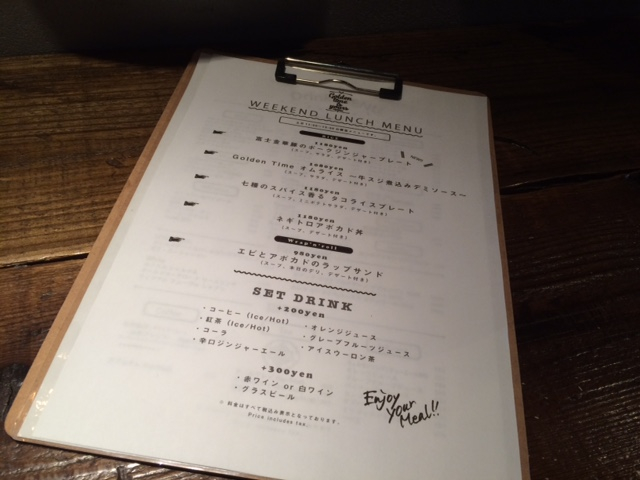 Golden
Time
WEEKEND LUNCH MENU
1180yen
富士金華豚のポークジンジャープレート
(スープ、サラダ、デザート付き)
1080yen
Golden Time オムライス ー牛スジ煮込みデミソースー
(スープ、サラダ、デザート付き)
1180yen
七種のスパイス香る タコライスプレート
1180yen
ネギトロアボカド丼
(スープ、デザート付き)
Wrap'n'roll
980yen
エビとアボカドのラップサンド
(スープ、本日のデリ、デザート付き)
SET DRINK
+200yen
・コーヒー (Ice/Hot) ・オレンジジュース
・紅茶 (Ice/Hot) ・グレープフルーツジュース
・コーラ ・アイスウーロン茶
・辛口ジンジャーエール
+300yen
・赤ワイン or 白ワイン
・グラスビール
※ 料金はすべて税込み表示となっております。
Price includes tax.
Enjoy
Your
Meal!!